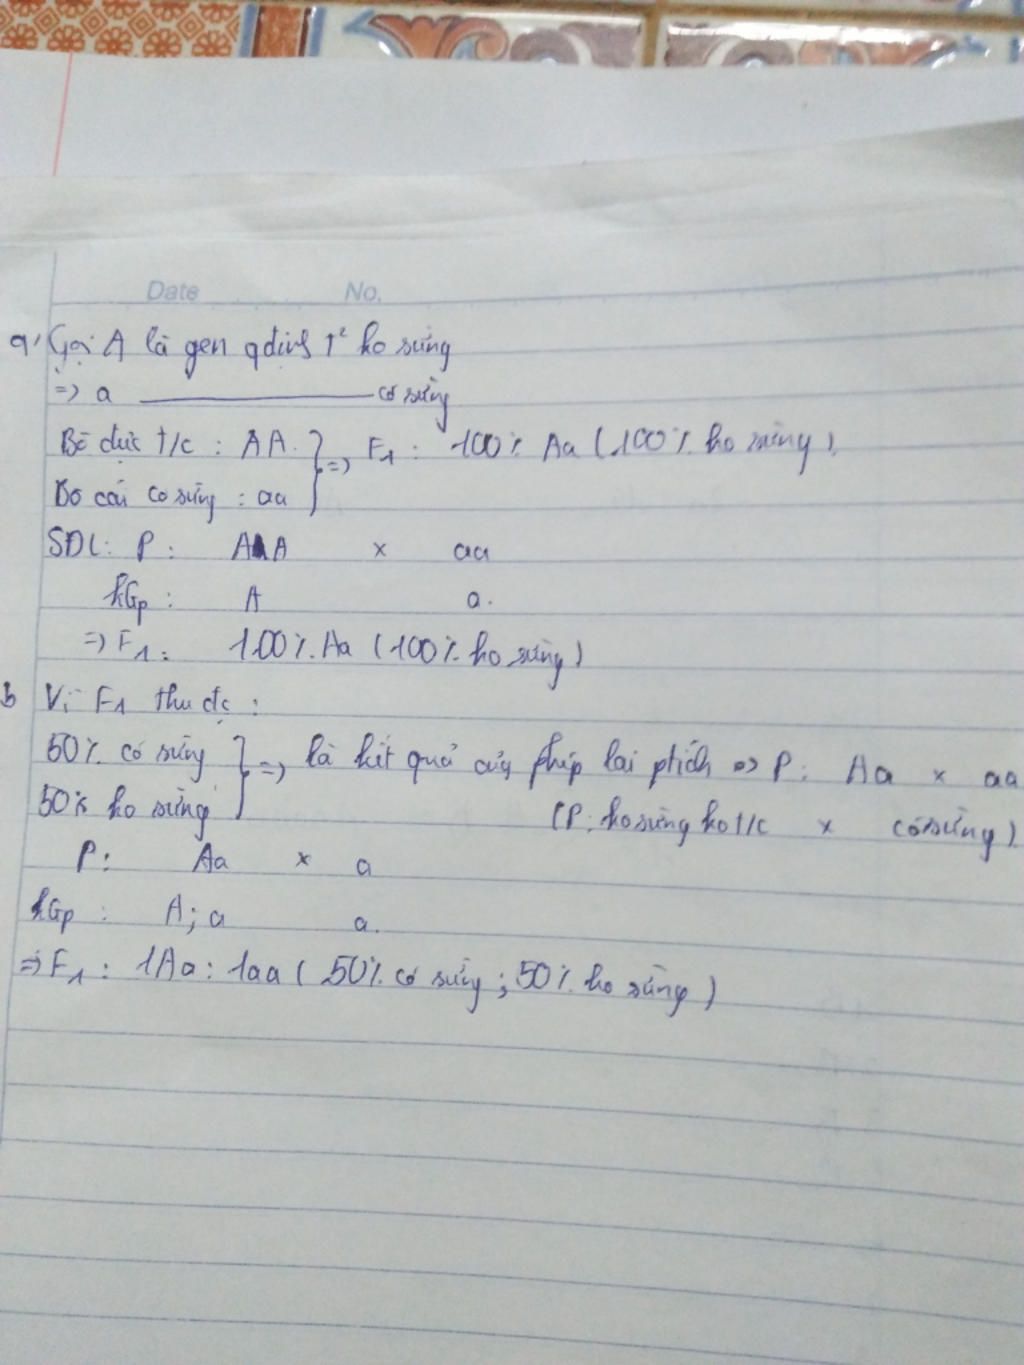 Date No.
a, Gọi A là gen qđịnh T² ko sừng
=> a ——— có sừng
Bò đực t/c : AA. } => F1 : 100% Aa (100% ko sừng).
Bò cái có sừng : aa
SĐL: P : AA x aa
kGp : A a.
=> F1 : 100% Aa (100% ko sừng)
b Vì F1 thu đc :
50% có sừng } => là kết quả của phép lai ptích => P : Aa x aa
50% ko sừng (P: ko sừng ko t/c x có sừng)
P: Aa x a
kGp : A; a a.
=> F1 : 1Aa : 1aa ( 50% có sừng ; 50% ko sừng )